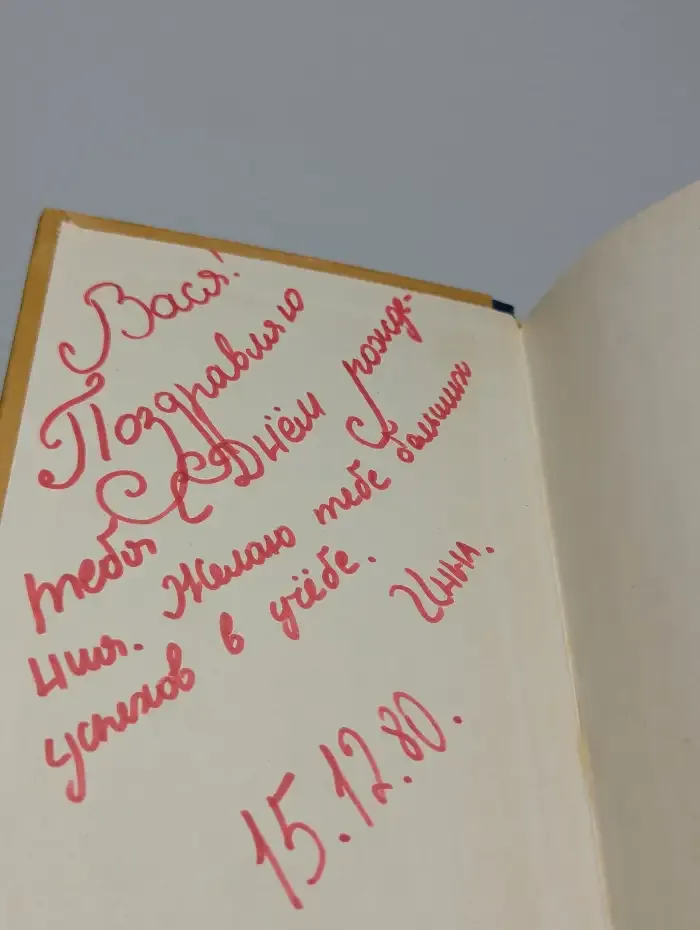 Вася!
Поздравляю
тебя с Днём рожде-
ния. Желаю тебе больших
успехов в учёбе.
15.12.80.